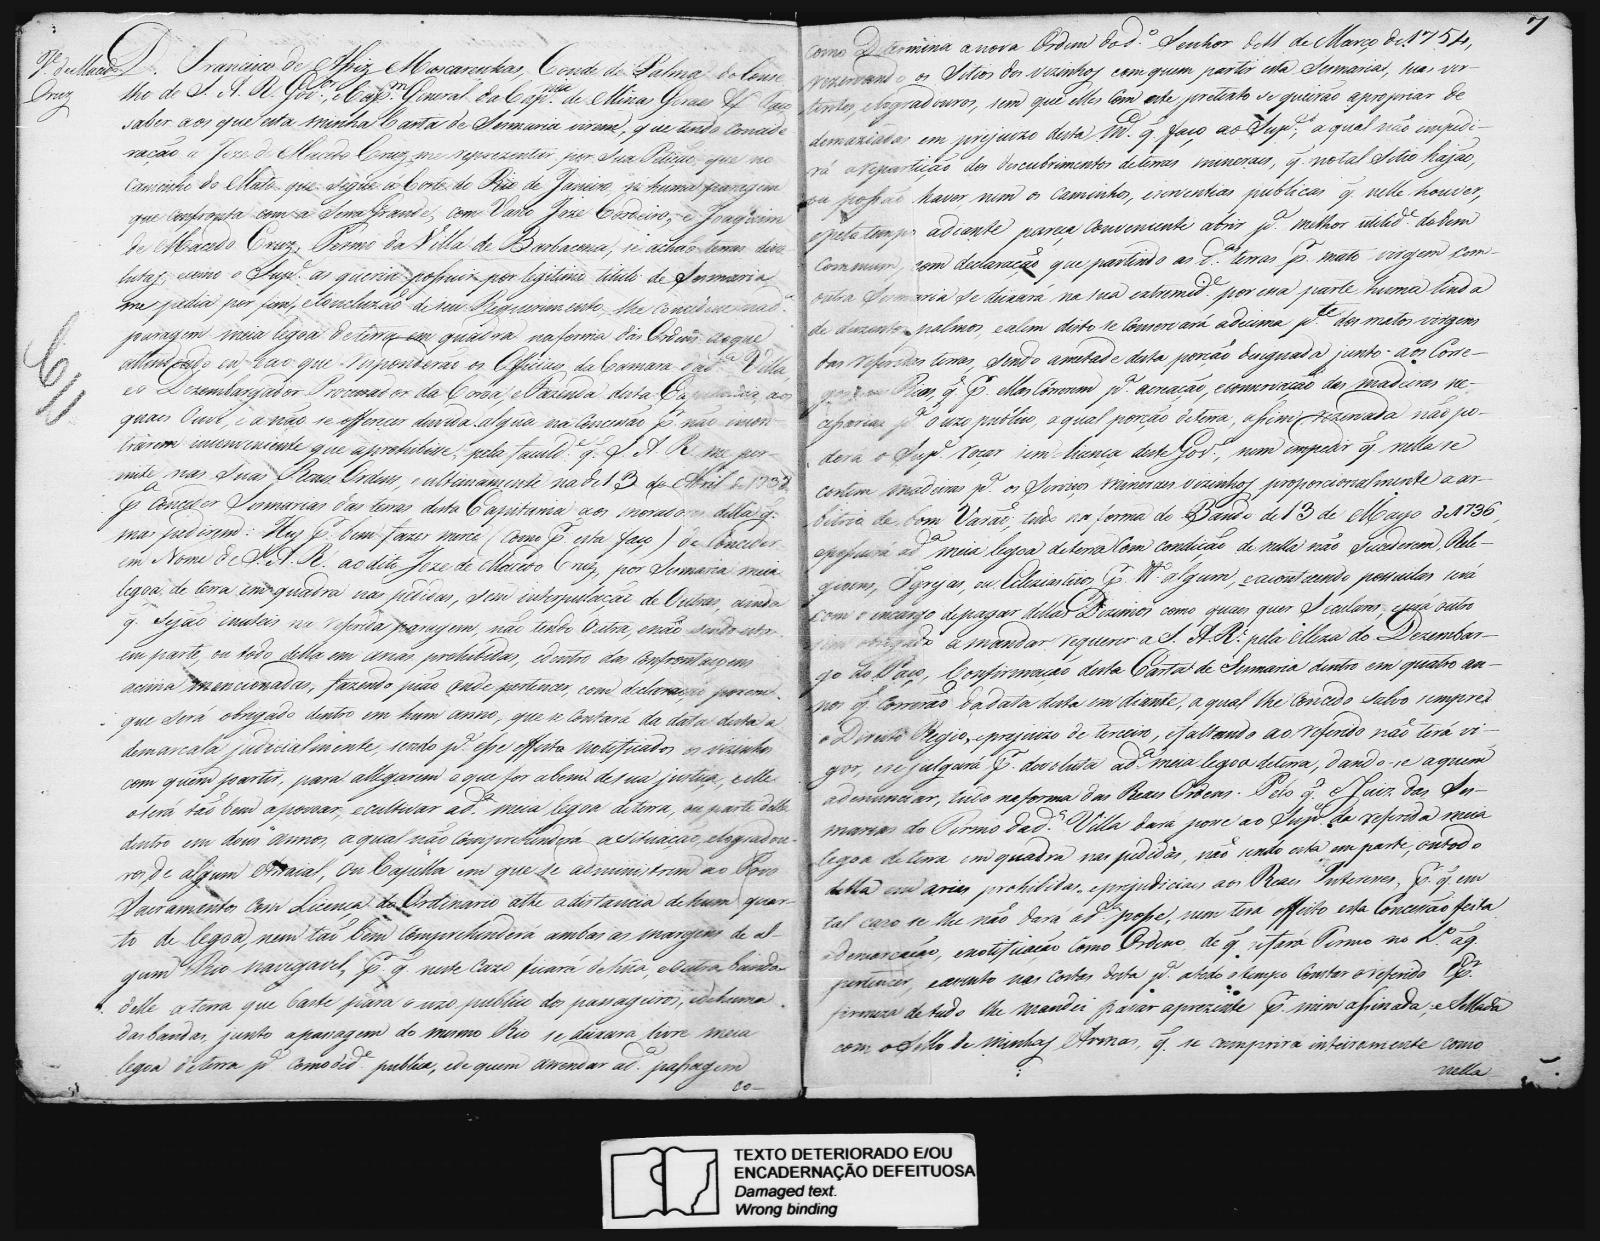 Je. de Macedo
Cruz
D. Francisco de Assiz Mascarenhas, Conde de Palma do Conse
lho de S. A. R. Govor., e Capm. General da Capnia. de Minas Geraes &c. Faço
saber aos que esta minha Carta de Sesmaria virem, que tendo conside
ração a Joze de Macedo Cruz me reprezentar por Sua Petição, que no
Caminho do Mato que segue á Corte do Rio de Janeiro, n'huma paragem
que confronta com a Serra Grande, com Joze Cordeiro, e Joaquim
de Macedo Cruz, Termo da Villa de Barbacena, se achão terras devo
lutas, e como o Supe. as queria possuir por legitimo titulo de Sesmaria
me pedia por fim, e concluzão de seu Requerimento lhe concedesse na da.
paragem meia legoa de terra em quadra na forma das Ordens, ao que
attendendo eu, e ao que responderão os Officiaes da Camara da da. Villa,
e o Dezembargador Procurador da Coroa, e Fazenda desta Capitania, aos
quaes Ouvi, e a não se offerecer duvida algũa na Concessão pr. não encon
trarem inconveniente que a prohibisse, pela faculde. q. S. A. R. me per
mite nas Suas Reaes Ordens, e ultimamente na de 13 de Abril de 1738
pa. conceder Sesmarias das terras desta Capitania aos moradores della q.
mas pedirem: Hey pr. bem fazer merce (como pr. esta faço) de Conceder
em Nome de S. A. R. ao dito Joze de Macedo Cruz, por Sesmaria meia
legoa de terra em quadra nas pedidas, sem interpolação de Outras, ainda
q. sejão inuteis na referida paragem, não tendo Outra, e não sendo esta
em parte, ou todo della em areas prohibidas, e dentro das confrontaçoens
acima mencionadas, fazendo pião onde pertencer, com declaração porem
que será obrigado dentro em hum anno, que se contará da data desta a
demarcala judicialmente, sendo pa. esse effeito notificados os vizinhos
com quem partir, para allegarem o que for a bem de sua justiça, e elle
o será tão bem a povoar, e cultivar a da. meia legoa de terra, ou parte della
dentro em dois annos, a qual não Comprehenderá a situação, e logradou
ros de algum Arraial, Ou Capella em que se administrem ao Povo
Sacramentos com Licença do Ordinario athe a distancia de hum quar
to de legoa, nem tão bem comprehenderá ambas as margens de al
gum Rio navegavel, pr. q. neste Cazo ficará de hũa, e outra banda
delle a terra que baste para o uzo publico dos passageiros, e de huma
das bandas, junto a passagem do mesmo Rio se deixara livre meia
legoa de terra pa. comodide. publica, e de quem arrendar a da. passagem
co-
7
como Determina a nova Ordem do do. Senhor de 11 de Março de 1754,
rezervando os Sitios dos vizinhos com quem partir esta Sesmaria, suas ver
tentes, e logradouros, sem que elles com este pretexto se queirão apropriar de
demaziadas em prejuizo desta Mce. q. faço ao Supe., a qual não impedi-
rá a repartição dos descubrimentos de terras mineraes, q. no tal Sitio hajão,
ou possão haver nem os caminhos, e serventias publicas q. nelle houver,
e pelo tempo adiante pareça conveniente abrir pa. melhor utilide. do bem
Commum, com declaração que partindo as das. terras pr. mato virgem com
outra Sesmaria se deixará na sua extremide. por essa parte huma linda
de duzentos palmos, e alem disto se Conservará a decima pte. dos matos virgens
das referidas terras, sendo ametade desta porção designada junto aos Corre-
gos, ou Rios, q. pr. ellas Correrem pa. a creação, e conservação das madeiras ne-
cessarias pa. o uzo publico, a qual porção de terra, assim rezervada não po-
derá o Supe. roçar sem licença deste Govo., nem empedir q. nella se
cortem madeiras pa. os Serviços mineraes vizinhos proporcionalmente a ar-
bitrio de bom Varão, tudo na forma do Bando de 13 de Mayo de 1736,
e possuirá a da. meia legoa de terra com condição de nella não Sucederem Reli-
gioens, Igrejas, ou Ecleziasticos pr. tto. algum, e acontecendo possuilas será
com o encargo de pagar dellas Dizimos como quaes quer Seculares, e será outro
sim obrigado a mandar requerer a S. A. R. pela Meza do Dezembar-
go do Paço, Confirmação desta Carta de Sesmaria dentro em quatro an-
nos q. Correrão da data desta em diante, a qual lhe concedo salvo sempre
o Direito Regio, e prejuizo de terceiro, e faltando ao referido não terá vi-
gor, e se julgará pr. devoluta a da. meia legoa de terra, dando-se a quem
a denunciar, tudo na forma das Reaes Ordens. Pelo q. o Juiz das Ses-
marias do Termo da da. Villa dará posse ao Supe. da referida meia
legoa de terra em quadra nas pedidas, não sendo esta em parte, ou todo
della em areas prohibidas, e prejudiciaes aos Reaes Interesses, pr. q. em
tal cazo se lhe não dará a da. posse, nem tera effeito esta Concessão feita
a demarcação, e notificação como Ordeno, de q. se fará Termo no Lo. a q.
pertencer, e assento nas costas desta pa. a todo o tempo Constar o referido. E pr.
firmeza de tudo lhe mandei passar a prezente pr. mim assinada, e Sellada
com o Sello de minhas Armas, q. se comprira inteiramente como
nella
TEXTO DETERIORADO E/OU
ENCADERNAÇÃO DEFEITUOSA
Damaged text.
Wrong binding